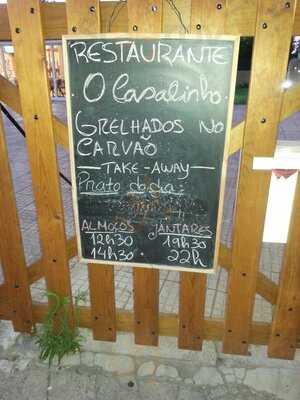 RESTAURANTE
O Casalinho
GRELHADOS NO
CARVÃO
TAKE-AWAY
Prato do dia:
ALMOÇOS JANTARES
12h30 19h30
14h30 22h